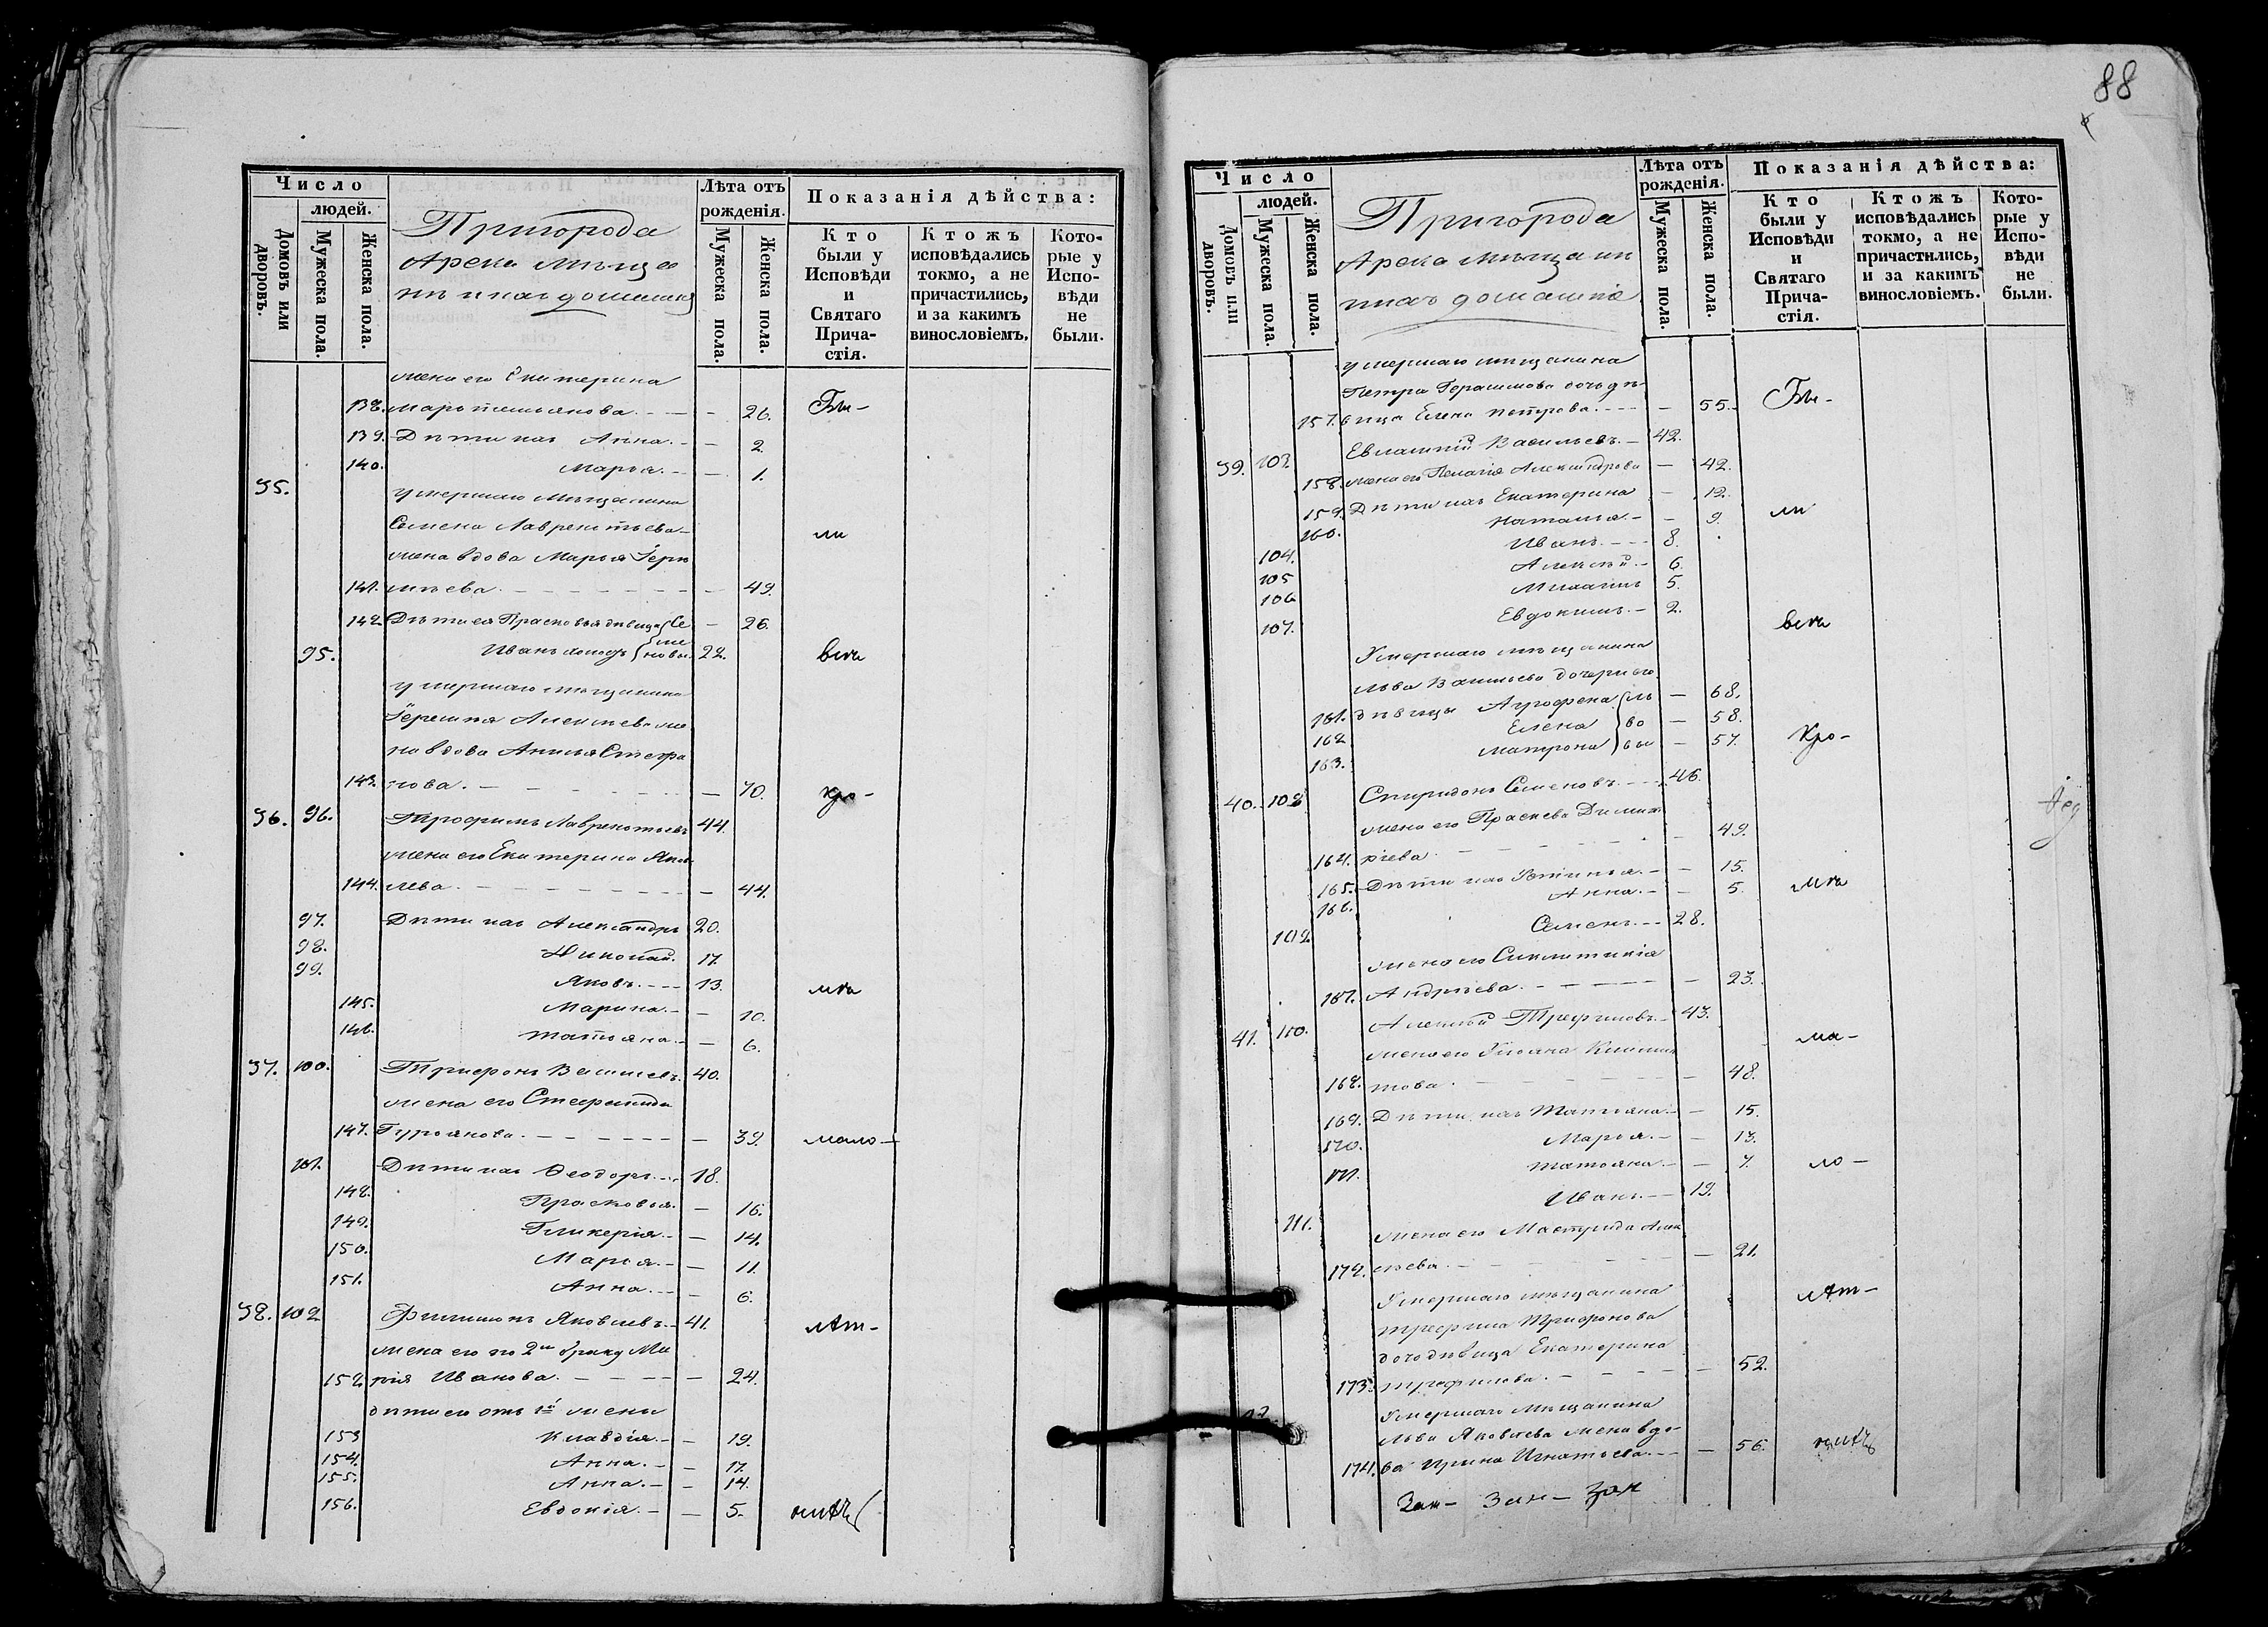 88
Число
людей.
Домовъ или дворовъ.
Мужеска пола.
Женска пола.
Пригорода
Арска мѣща
не и ихъ домашніе
Лѣта отъ рожденія.
Мужеска пола.
Женска пола.
Показанія дѣйства:
Кто были у Исповѣди и Святаго Причастія.
Ктожъ исповѣдались токмо, а не причастились, и за какимъ винословіемъ.
Которые у Исповѣди не были.
жена его Екатерина
138. Мартемьянова. — — 26. Бы-
139. Дѣти ихъ Анна. — — 2.
140. Марья. — — 1.
35. умершаго мѣщанина
Семена Лаврентьева
жена вдова Марья Ере ли
141. мѣева. — — 49.
142. Дѣти ея Прасковья дѣвица Се — 26.
95. Иванъ холостъ ме новы 22. всѣ
умершаго мѣщанина
Еремѣя Алексѣева же
на вдова Акилина Стефа
143. нова. — — 70. кро-
36. 96. Трофимъ Лаврентьевъ 44.
жена его Екатерина Яков
144. лева. — — 44.
97. Дѣти ихъ Александръ 20.
98. Николай. 17.
99. Яковъ. — 13. мѣ
145. Марина. — — 10.
146. Татьяна. — — 6.
37. 100. Трифонъ Васильевъ. 40.
жена его Стефанида
147. Гурьянова. — — 39. мало-
101. Дѣти ихъ Ѳеодоръ. — 18.
148. Прасковья. — 16.
149. Гликерія. — — 14.
150. Марья. — — 11.
151. Анна. — — 6.
38. 102 Филимонъ Яковлевъ. — 41. лѣт-
жена его по 2му браку Ма
152 рія Иванова. — — 24.
дѣти его отъ 1й жены
153 Клавдія. — — 19.
154. Анна. — — 17.
155. Анна. — — 14.
156. Евдокія. — — 5. нихъ
Число
людей.
Домовъ или дворовъ.
Мужеска пола.
Женска пола.
Пригорода
Арска мѣщане и
ихъ домашніе
Лѣта отъ рожденія.
Мужеска пола.
Женска пола.
Показанія дѣйства:
Кто были у Исповѣди и Святаго Причастія.
Ктожъ исповѣдались токмо, а не причастились, и за какимъ винословіемъ.
Которые у Исповѣди не были.
умершаго мѣщанина
Петра Герасимова дочь дѣ-
157. вица Елена Петрова. — — 55. Бы-
39. 103. Евлампій Васильевъ. — 42.
158. жена его Пелагія Александрова — 42.
159. Дѣти ихъ Екатерина — 12. ли
160. Наталья. — — 9.
104. Иванъ. — 8.
105 Алексѣй. — 6.
106 Михаилъ 5.
107. Евдокимъ. — 2. всѣ
Умершаго мѣщанина
Льва Васильева дочери его
161. дѣвицы Агрофена ль — 68.
162 Елена во — 58.
163. Матрона вы — 57. Кро-
40. 108 Спиридонъ Семеновъ. — 46.
жена его Праскева Димит
164. ріева. — — 49.
165. Дѣти ихъ Устинья. — — 15.
166. Анна. — — 5. мѣ
109. Семенъ. — 28.
жена его Синклитикія
167. Андрѣева. — — 23.
41. 110. Алексѣй Трефиловъ. — 43. ма-
жена его Ульяна Климен
168. това. — — 48.
169. Дѣти ихъ Татьяна. — — 15.
170. Марья. — — 13.
171. Татьяна. — — 7. ло-
111. Иванъ. — 19.
жена его Мастридія Алек
172. сѣева. — — 21.
Умершаго мѣщанина лѣт-
Трефила Трифонова
дочь дѣвица Екатерина
173. Трефилова. — — 52.
Умершаго мѣщанина
Льва Яковлева жена вдо-
174. ва Ирина Игнатьева. — — 56. нихъ